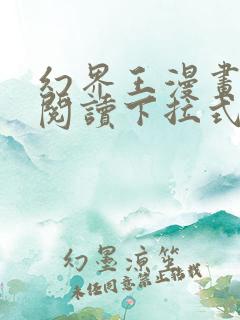 幻界王漫畫
閱讀下拉式
幻墨涼笙
未經同意禁止轉載